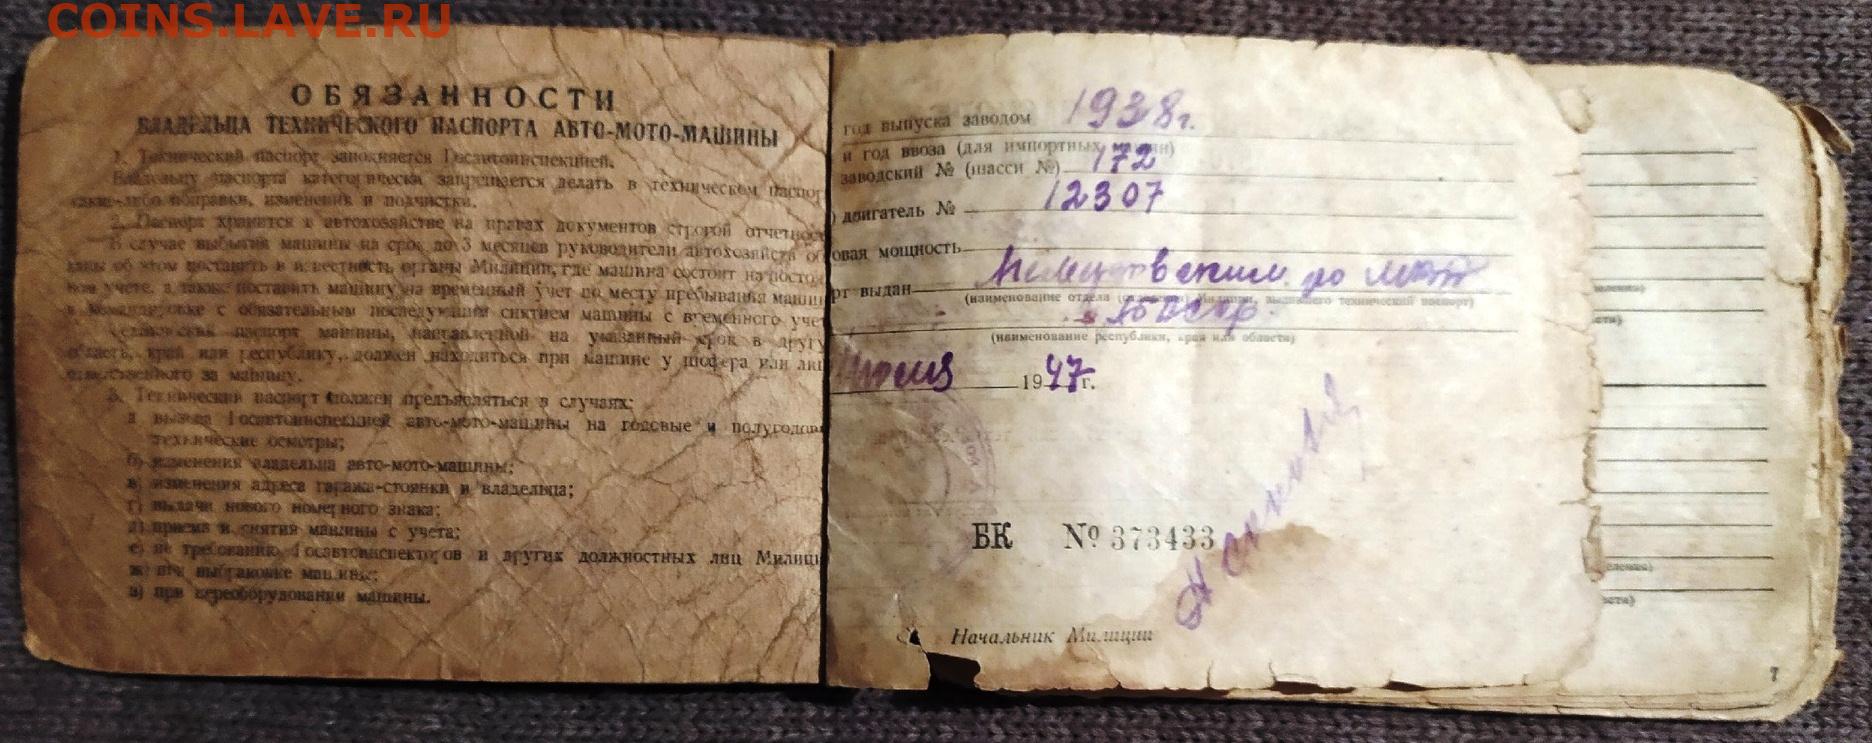 COINS.LAVE.RU
ОБЯЗАННОСТИ
ВЛАДЕЛЬЦА ТЕХНИЧЕСКОГО ПАСПОРТА АВТО-МОТО-МАШИНЫ
1. Технический паспорт заполняется Госавтоинспекцией.
Владельцу паспорта категорически запрещается делать в техническом паспор
какие-либо поправки, изменения и подчистки.
2. Паспорт хранится в автохозяйстве на правах документов строгой отчетнос
В случае выбытия машины на срок до 3 месяцев руководители автохозяйств об
заны об этом поставить в известность органы Милиции, где машина состоит на посто
ном учете, а также поставить машину на временный учет по месту пребывания машин
в командировке с обязательным последующим снятием машины с временного учет
Технический паспорт машины, направленной на указанный срок в другу
область, край или республику, должен находиться при машине у шофера или лиц
ответственного за машину.
3. Технический паспорт должен предъявляться в случаях:
а вызова Госавтоинспекцией авто-мото-машины на годовые и полугодовы
технические осмотры;
б) изменения владельца авто-мото-машины;
в) изменения адреса гаража-стоянки и владельца;
г) выдачи нового номерного знака;
д) приема и снятия машины с учета;
е) по требованию Госавтоинспекторов и других должностных лиц Милици
ж) при выбраковке машины;
з) при переоборудовании машины.
год выпуска заводом 1938г.
и год ввоза (для импортных машин)
заводский № (шасси №) 172
) двигатель № 12307
овая мощность
рт выдан
(наименование отдела Милиции, выдавшего технический паспорт)
(наименование республики, края или области)
1947г.
БК № 373433
Начальник Милиции
7